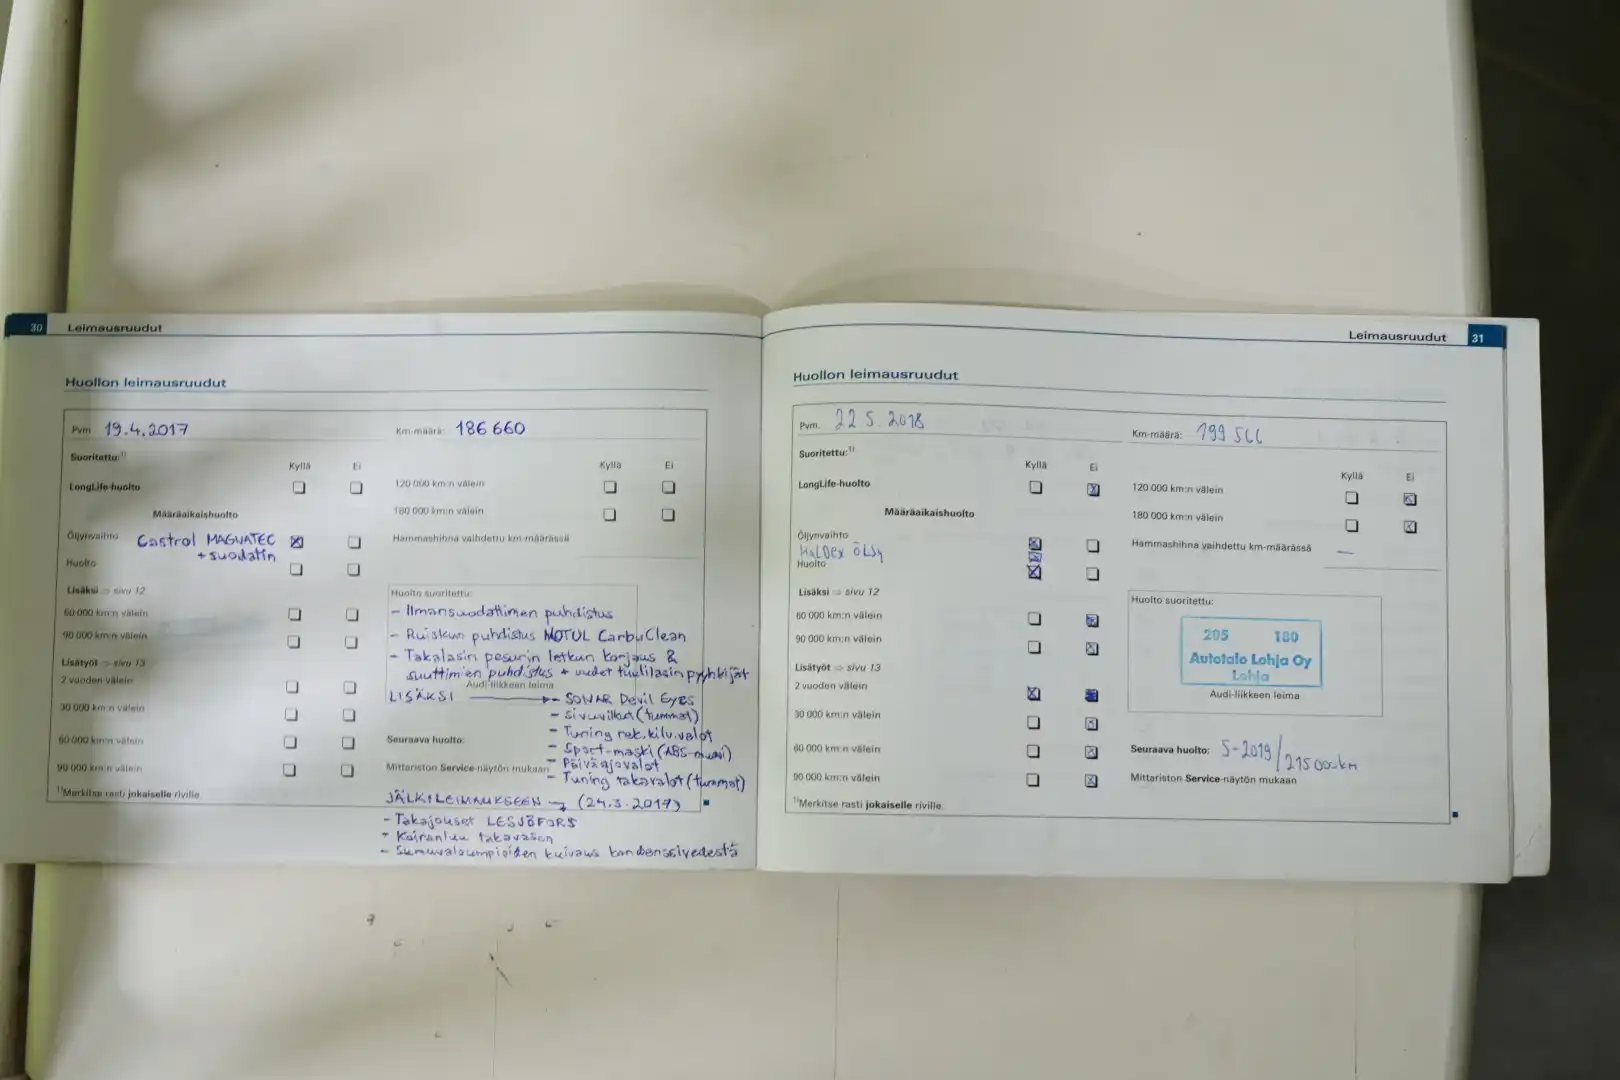 30 Leimausruudut
Huollon leimausruudut
Pvm. 19.4.2017
Km-määrä: 186 660
Suoritettu:¹⁾
Kyllä Ei
Kyllä Ei
LongLife-huolto
120 000 km:n välein
180 000 km:n välein
Määräaikaishuolto
Öljynvaihto Castrol MAGNATEC
+ suodatin
Hammashihna vaihdettu km-määrässä
Huolto
Lisäksi ⇒ sivu 12
60 000 km:n välein
90 000 km:n välein
Lisätyöt ⇒ sivu 13
2 vuoden välein
30 000 km:n välein
60 000 km:n välein
90 000 km:n välein
¹⁾Merkitse rasti jokaiselle riville.
Huolto suoritettu:
- Ilmansuodattimen puhdistus
- Ruiskun puhdistus MOTUL CarbuClean
- Takalasin pesurin letkun korjaus &
suuttimien puhdistus + uudet tuulilasin pyyhkijät
Audi-liikkeen leima
LISÄKSI → - SONAR Devil Eyes
- Sivuvilkut (tummat)
- Tuning rek.kilv.valot
Seuraava huolto:
- Sport-maski (ABS-muovi)
- Päiväajovalot
Mittariston Service-näytön mukaan
- Tuning takavalot (tummat)
JÄLKILEIMAUKSEEN → (24.3.2017)
- Takajouset LESJÖFORS
- Koiranluu takavasen
- Sumuvaloumpioiden kuivaus kondenssivedestä
Leimausruudut 31
Huollon leimausruudut
Pvm. 22 5. 2018
Km-määrä: 199 566
Suoritettu:¹⁾
Kyllä Ei
Kyllä Ei
LongLife-huolto
120 000 km:n välein
180 000 km:n välein
Määräaikaishuolto
Öljynvaihto
HALDEX ÖLJY
Hammashihna vaihdettu km-määrässä —
Huolto
Lisäksi ⇒ sivu 12
60 000 km:n välein
90 000 km:n välein
Lisätyöt ⇒ sivu 13
2 vuoden välein
30 000 km:n välein
60 000 km:n välein
90 000 km:n välein
¹⁾Merkitse rasti jokaiselle riville.
Huolto suoritettu:
205 180
Autotalo Lohja Oy
Lohja
Audi-liikkeen leima
Seuraava huolto: 5-2019/215 000km
Mittariston Service-näytön mukaan